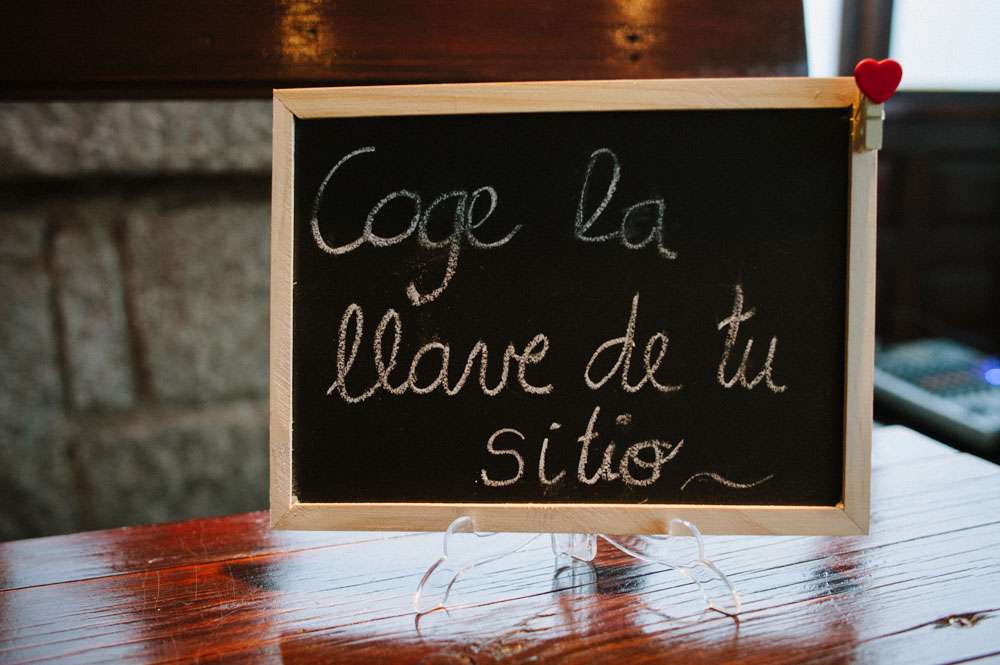 Coge la
llave de tu
sitio